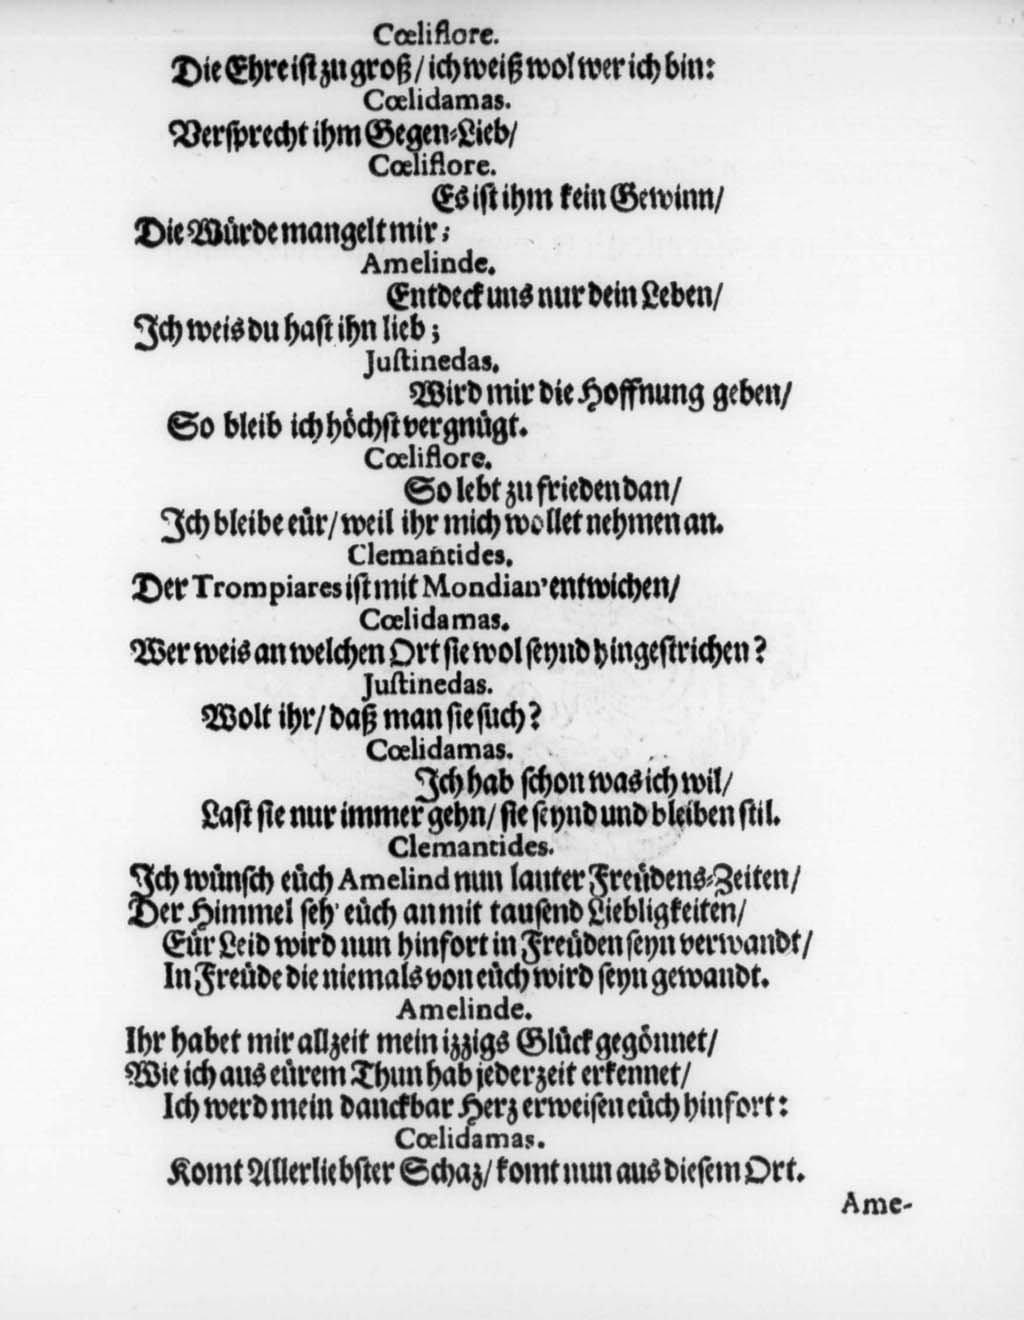 Cœliflore.
Die Ehre ist zu groß/ ich weiß wol wer ich bin:
Cœlidamas.
Versprecht ihm Gegen-Lieb/
Cœliflore.
Es ist ihm kein Gewinn/
Die Würde mangelt mir;
Amelinde.
Entdeck uns nur dein Leben/
Ich weis du hast ihn lieb;
Justinedas.
Wird mir die Hoffnung geben/
So bleib ich höchst vergnügt.
Cœliflore.
So lebt zu frieden dan/
Ich bleibe eür/ weil ihr mich wollet nehmen an.
Clemantides.
Der Trompiares ist mit Mondian' entwichen/
Cœlidamas.
Wer weis an welchen Ort sie wol seynd hingestrichen?
Justinedas.
Wolt ihr/ daß man sie such?
Cœlidamas.
Ich hab schon was ich wil/
Last sie nur immer gehn/ sie seynd und bleiben stil.
Clemantides.
Ich wünsch eüch Amelind nun lauter Freüdens-Zeiten/
Der Himmel seh' eüch an mit tausend Liebligkeiten/
Eür Leid wird nun hinfort in Freüden seyn verwandt/
In Freüde die niemals von eüch wird seyn gewandt.
Amelinde.
Ihr habet mir allzeit mein izzigs Glück gegönnet/
Wie ich aus eürem Thun hab jederzeit erkennet/
Ich werd mein danckbar Herz erweisen eüch hinfort:
Cœlidamas.
Komt Allerliebster Schaz/ komt nun aus diesem Ort.
Ame-